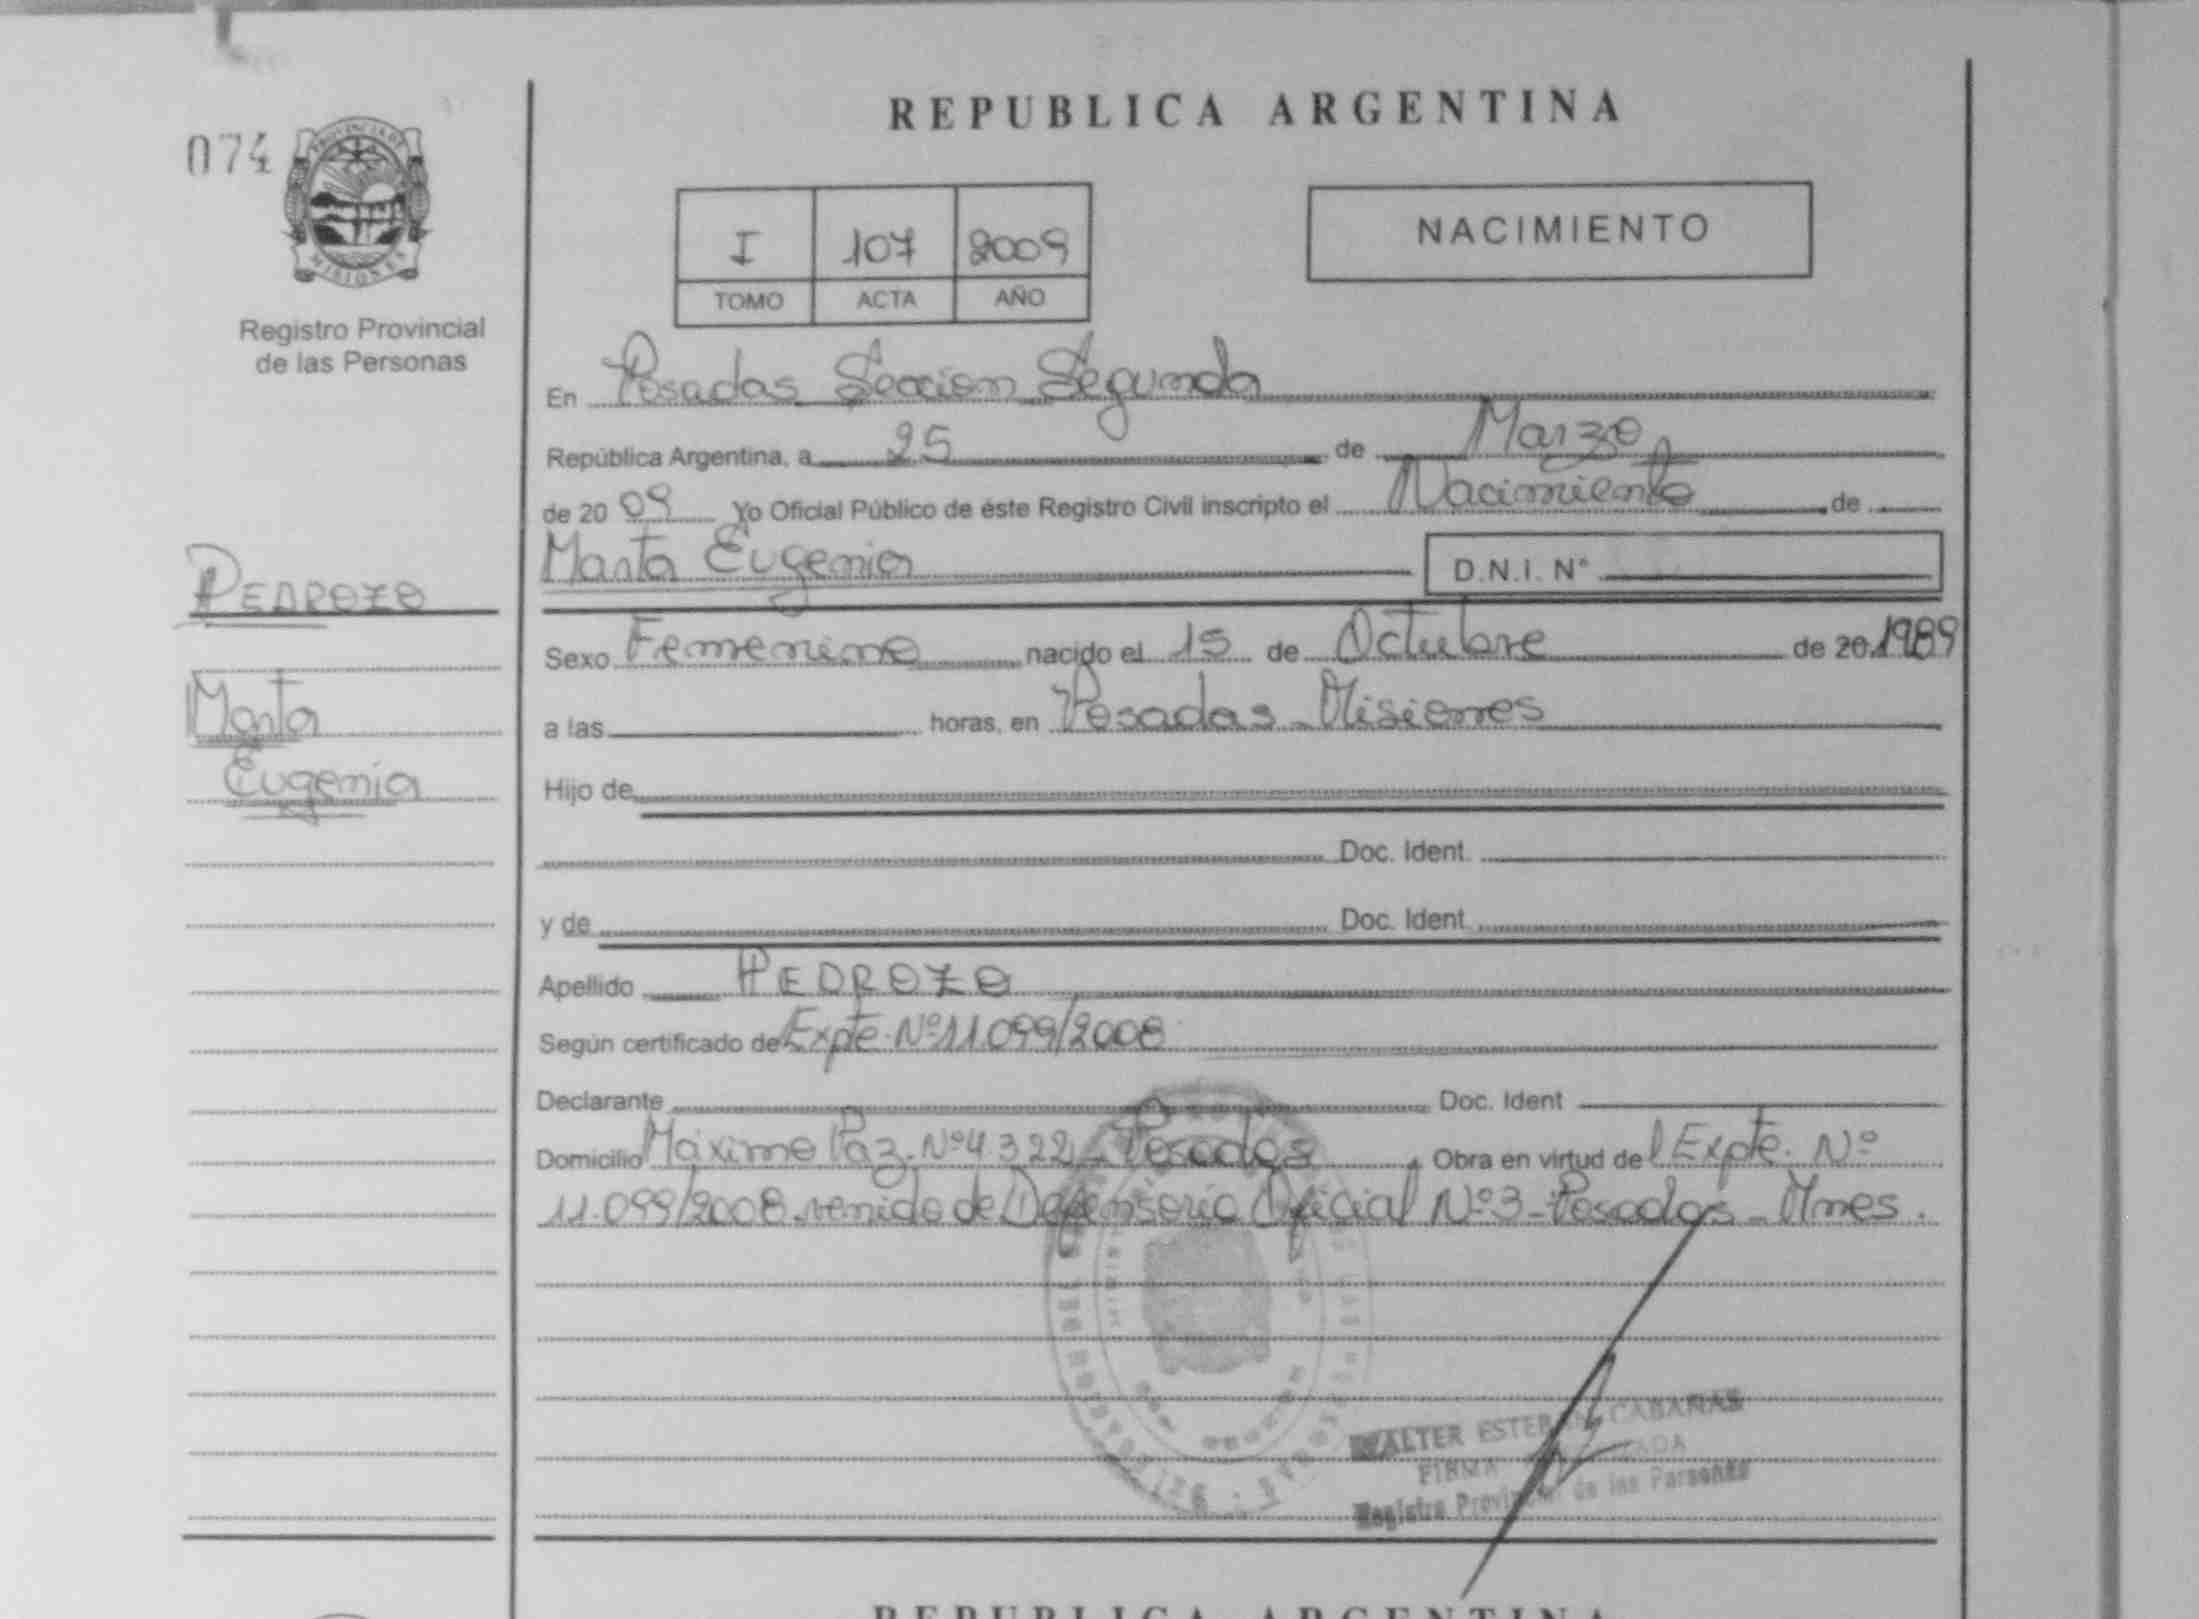 REPUBLICA ARGENTINA
074
PROVINCIA DE
MISIONES
Registro Provincial
de las Personas
I 107 2009
TOMO ACTA AÑO
NACIMIENTO
En Posadas Seccion Segunda
República Argentina, a 25 de Marzo
de 20 09 Yo Oficial Público de éste Registro Civil inscripto el Nacimiento de
Marta Eugenia D.N.I. N°
PEDROZO
Marta
Eugenia
Sexo Femenino nacido el 15 de Octubre de 20 1989
a las horas, en Posadas - Misiones
Hijo de
Doc. Ident.
y de Doc. Ident.
Apellido PEDROZO
Según certificado de Expte. Nº 11.099/2008
Declarante Doc. Ident
Domicilio Máximo Paz. Nº 4322 - Posadas, Obra en virtud del Expte. Nº
11.099/2008 venido de Defensoria Oficial Nº 3 - Posadas - Mnes.
WALTER ESTEBAN CABAÑAS
FIRMA
Registro Provincial de las Personas
REPUBLICA ARGENTINA